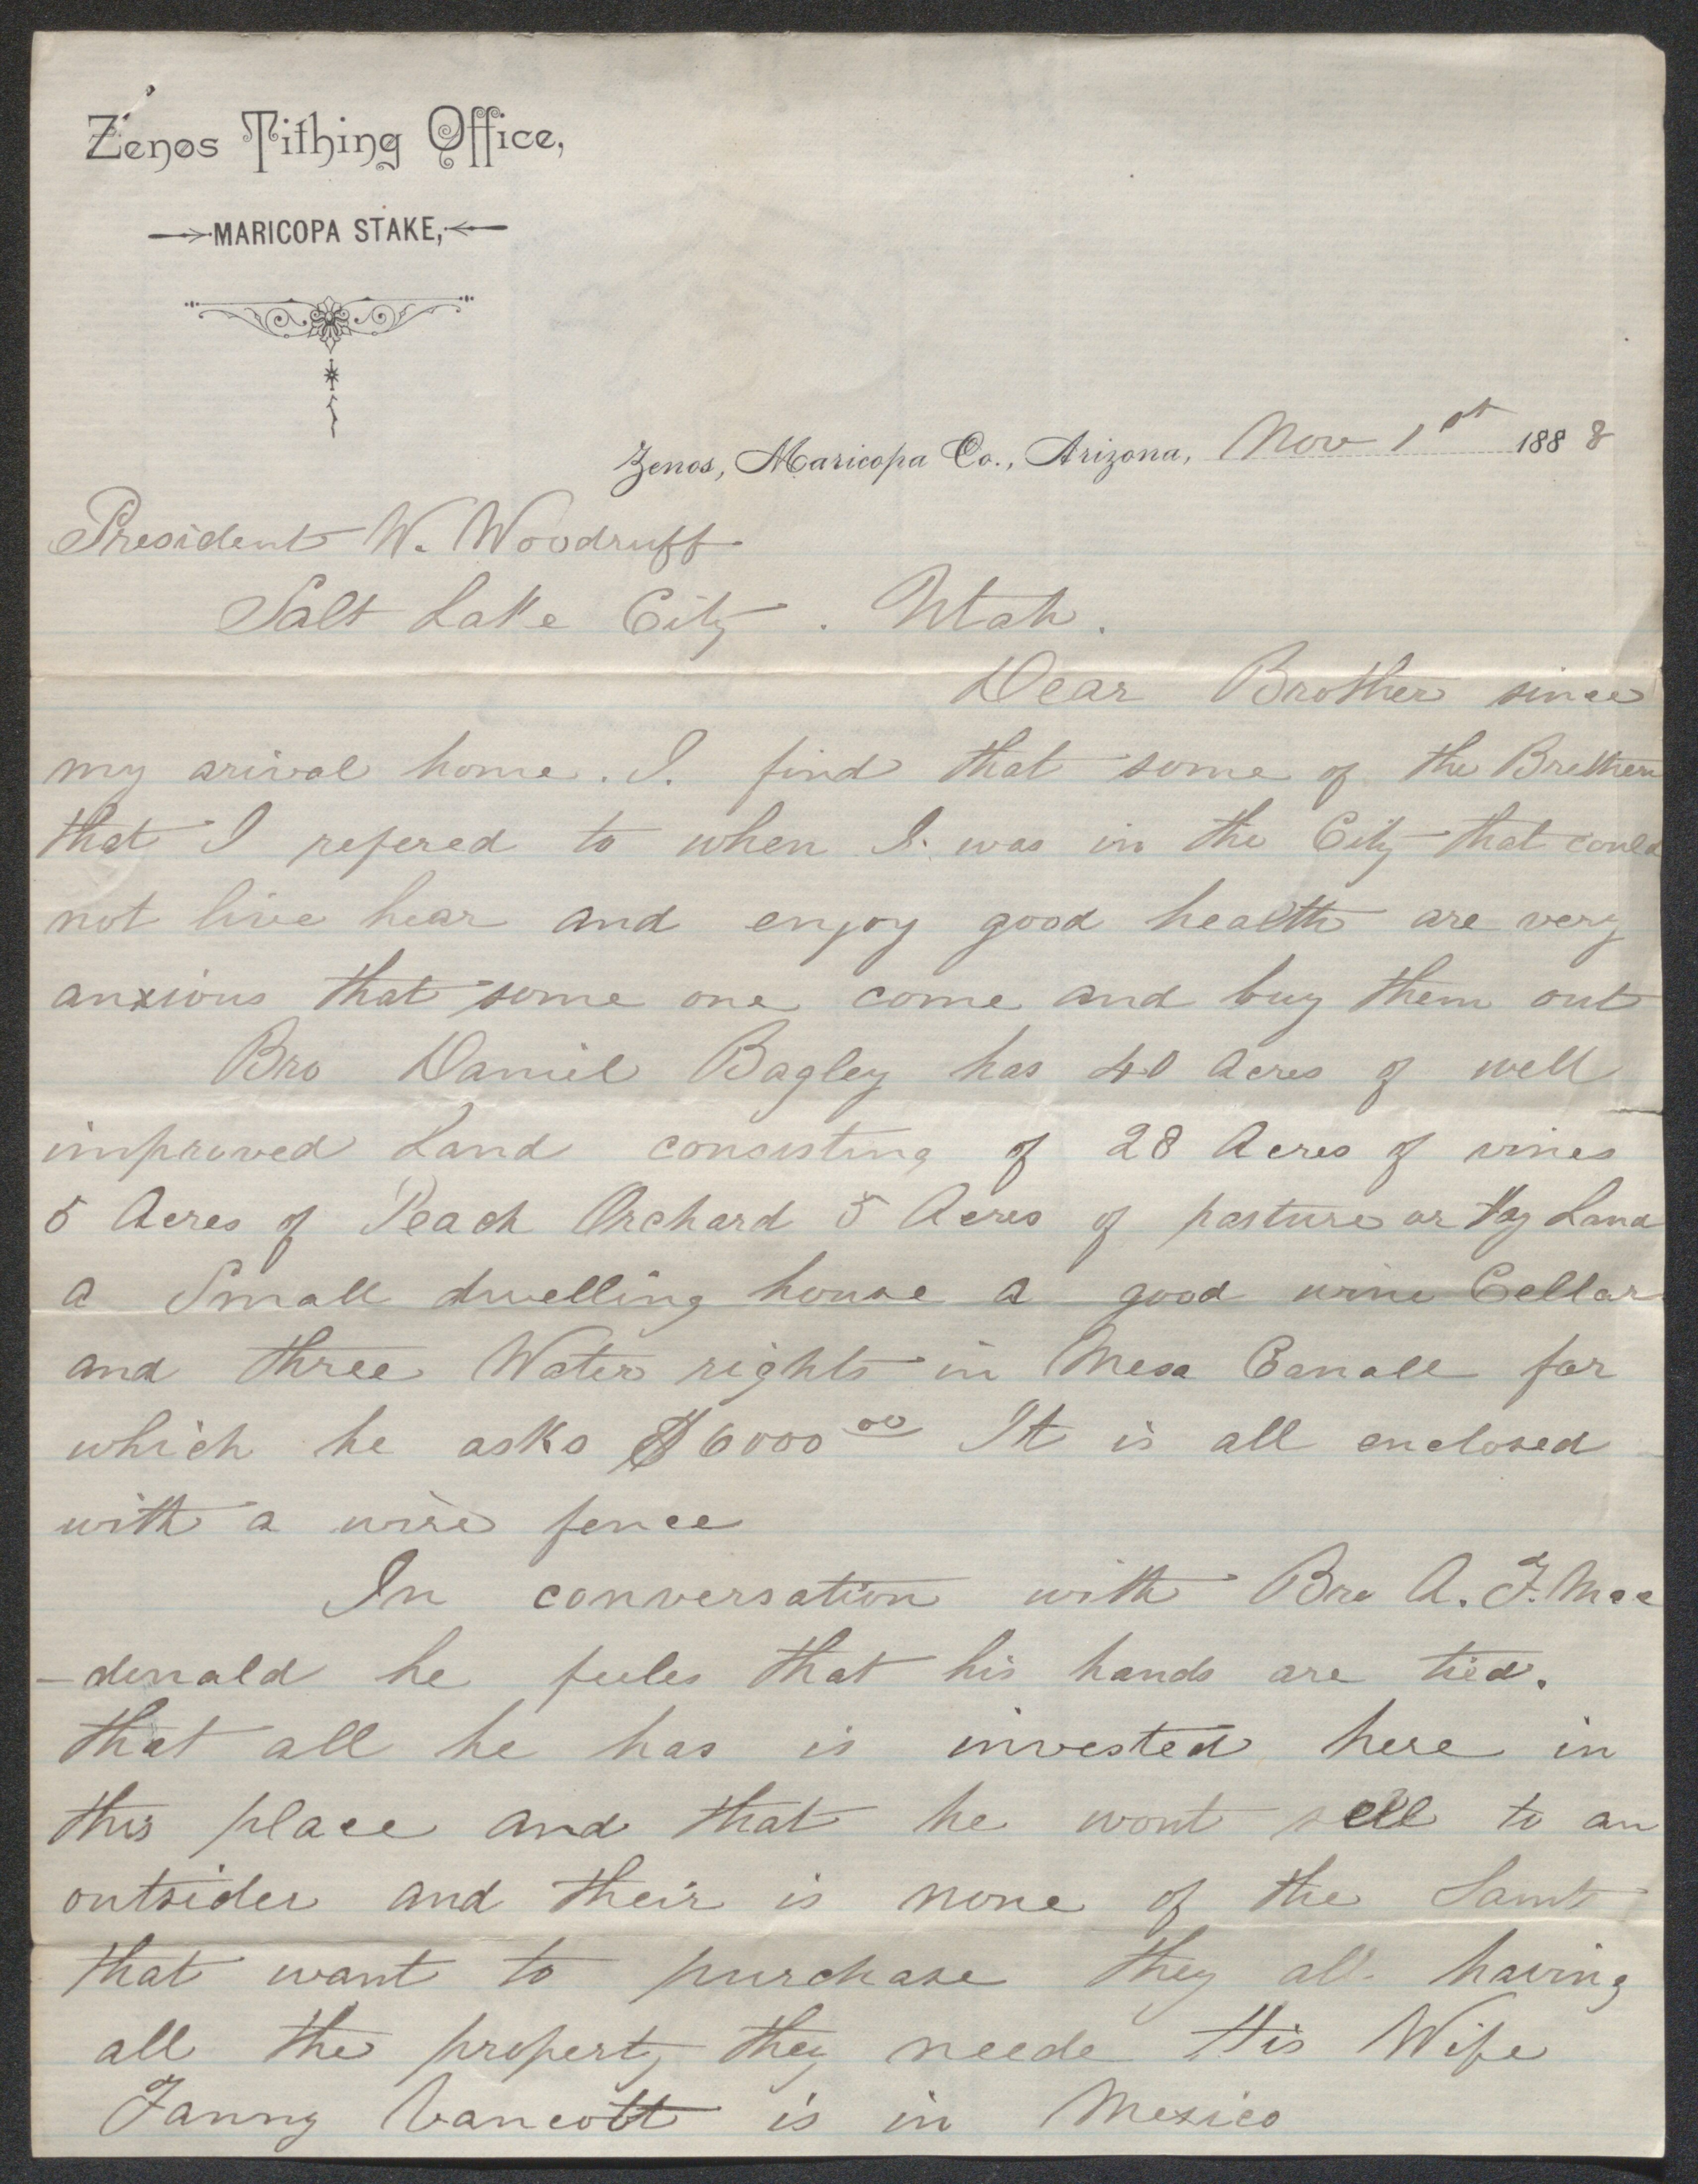 Zenos Tithing Office,
MARICOPA STAKE,
Zenos, Maricopa Co., Arizona, Nov 1st 1888
President W. Woodruff
Salt Lake City. Utah.
Dear Brother since
my arival home. I. find that some of the Brethern
that I refered to when I. was in the City that could
not live hear and enjoy good health are very
anxious that some one come and buy them out
Bro Daniel Bagley has 40 Acres of well
improved Land consisting of 28 Acres of vines
5 Acres of Peach Orchard 5 Acres of pasture or Hay Land
a Small dwelling house a good wine Cellar
and three Water rights in Mesa Canall for
which he asks $6000 00 It is all enclosed
with a wire fence
In conversation with Bro A. F. Mac
-donald he feeles that his hands are tied.
that all he has is invested here in
this place and that he wont sell to an
outsider and their is none of the Saints
that want to purchase they all having
all the property they neede His Wife
Fanny Vancott is in Mexico